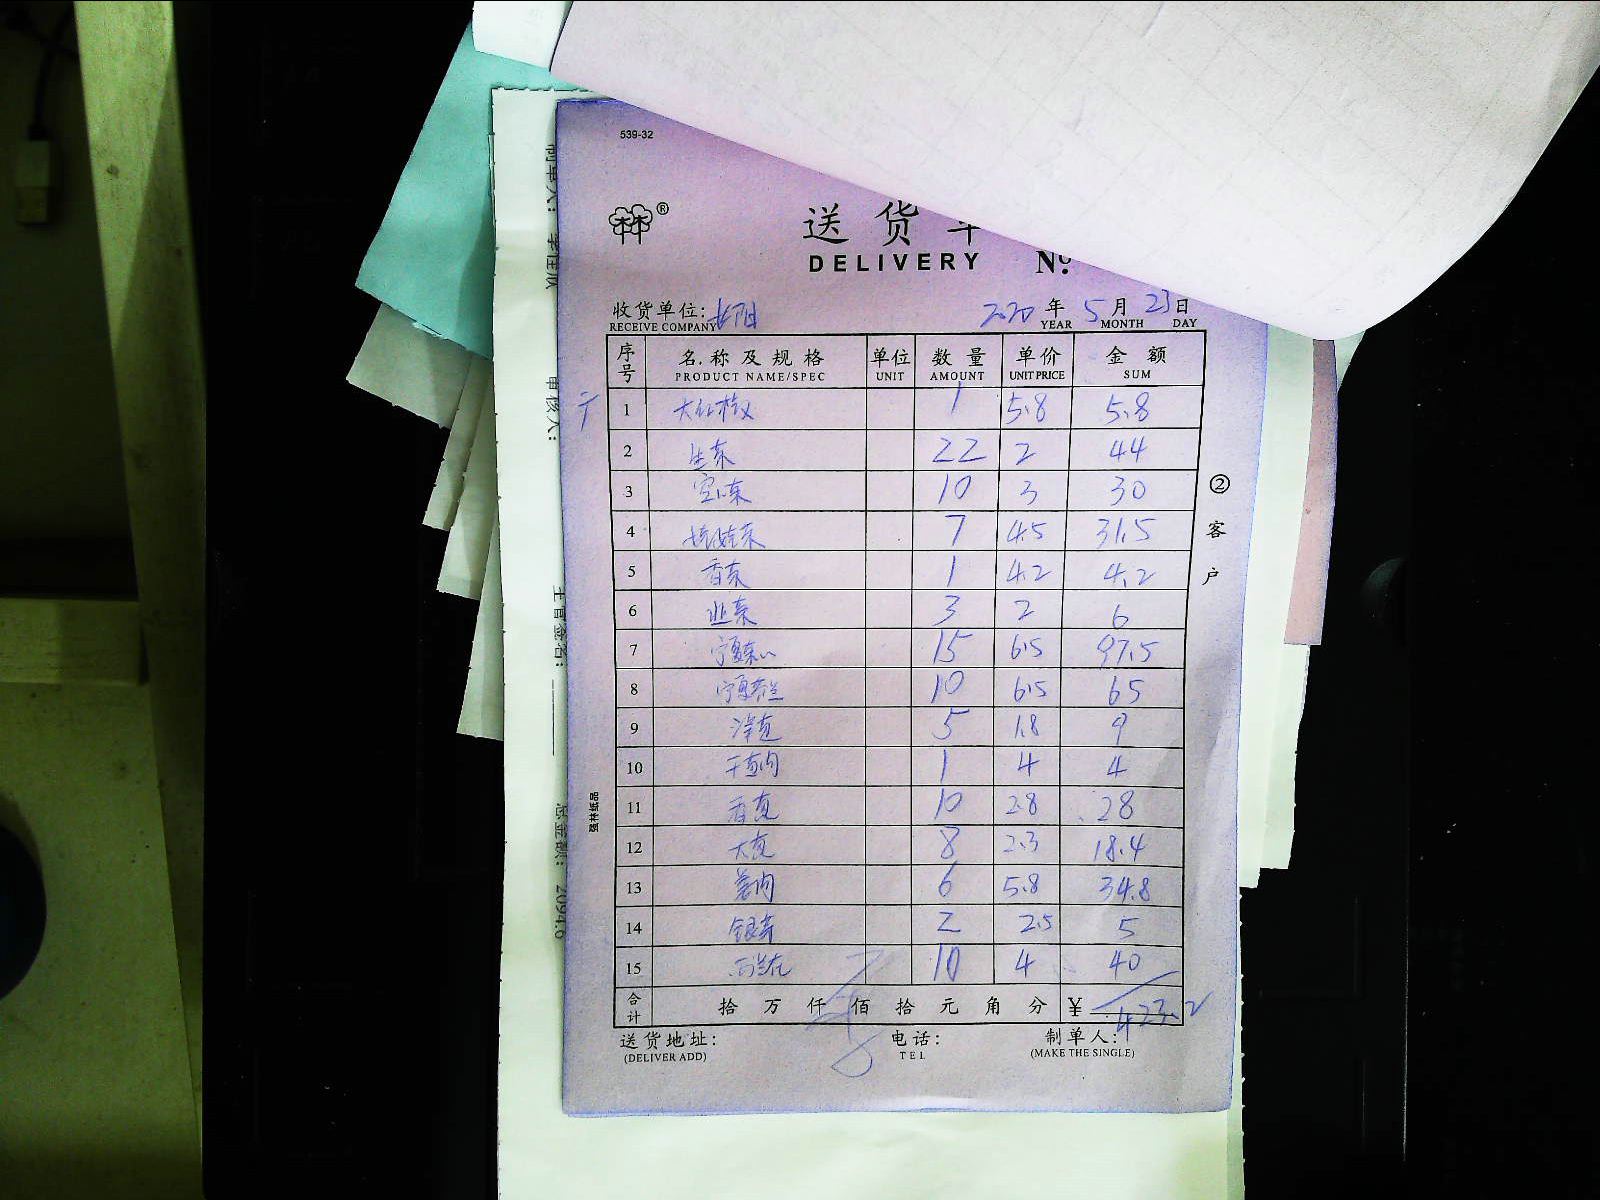 539-32
林林®
送货单
DELIVERY No.
收货单位: 2020年5月23日
RECEIVE COMPANY YEAR MONTH DAY
序号 名称及规格 单位 数量 单价 金额
PRODUCT NAME/SPEC UNIT AMOUNT UNIT PRICE SUM
1 大红椒 1 5.8 5.8
2 生菜 22 2 44
3 空心菜 10 3 30
4 娃娃菜 7 4.5 31.5
5 香菜 1 4.2 4.2
6 韭菜 3 2 6
7 宁夏菜心 15 6.5 97.5
8 宁夏芥兰 10 6.5 65
9 5 1.8 9
10 1 4 4
11 10 2.8 28
12 8 2.3 18.4
13 姜肉 6 5.8 34.8
14 银芽 2 2.5 5
15 10 4 40
合计 拾 万 仟 佰 拾 元 角 分 ¥ 423.2
送货地址: 电话: 制单人:
(DELIVER ADD) TEL (MAKE THE SINGLE)
②客户
强林纸品
制单人:
审核人:
主管签名:
总金额: 2094.6